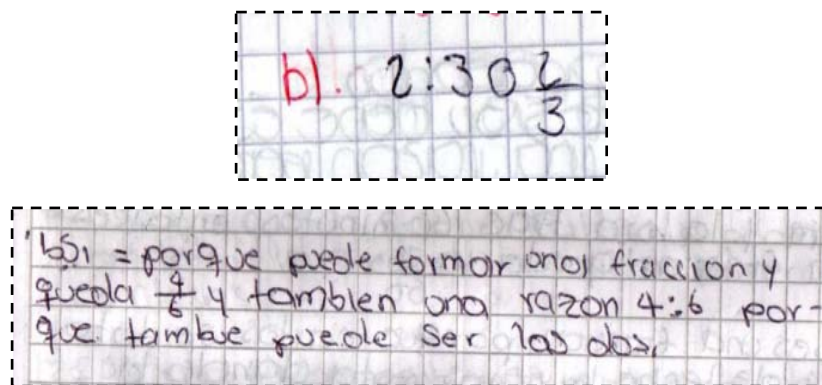 b). 2:3 o 2/3
b) Si = porque puede formar una fraccion y
queda 4/6 y tambien una razon 4:6 por-
que tambie puede ser las dos,